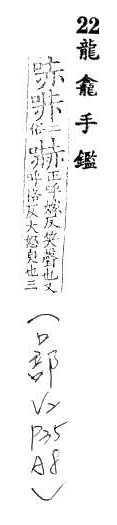 22 龍龕手鑑
哧 二俗 嚇 正呼嫁反笑聲也又呼格反大怒皃也三
(口部 V2 P35 A8)